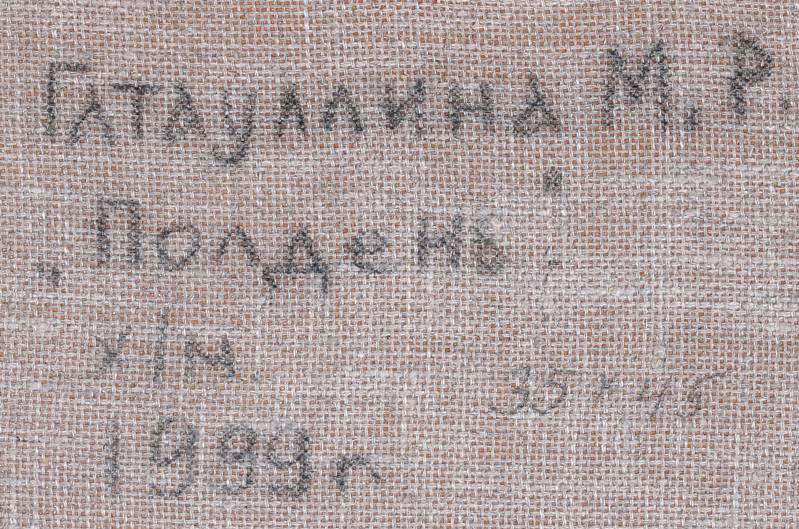 Гатауллина М.Р.
„Полдень".
х/м
35×45
1999 г